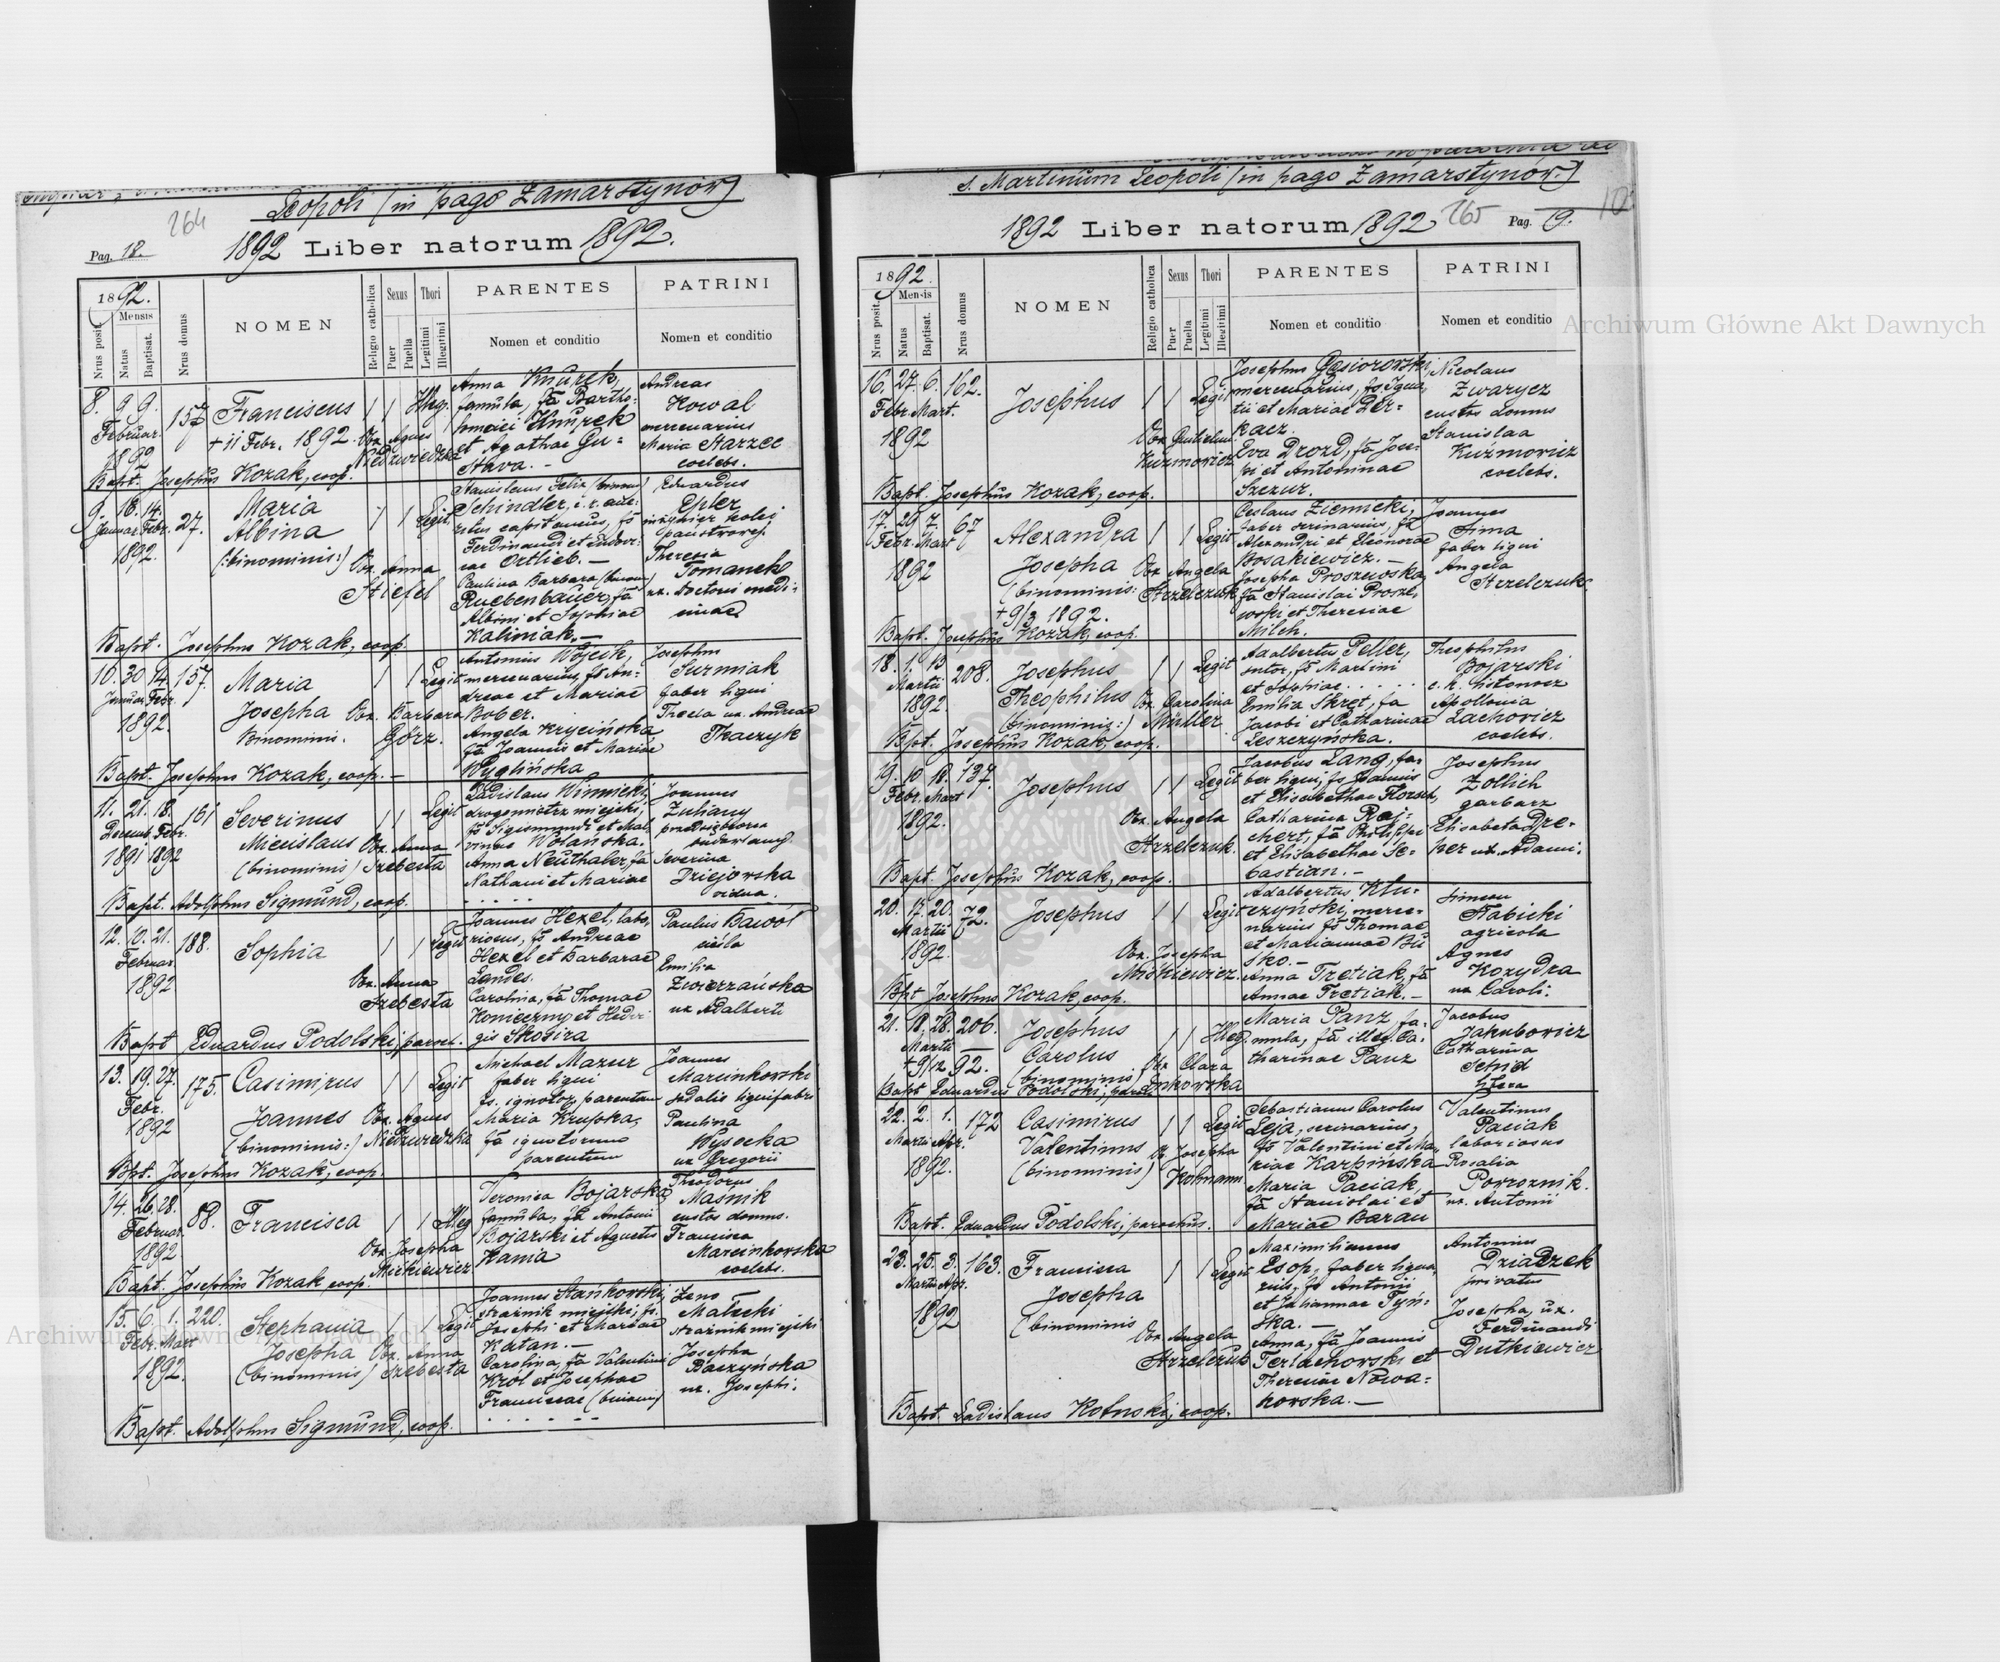 Leopoli (in pago Zamarstynów)
264
Pag. 18.
1892 Liber natorum 1892.
1892.
Nrus posit.
Mensis
Natus
Baptisat.
Nrus domus
NOMEN
Religio catholica
Sexus
Puer
Puella
Thori
Legitimi
Illegitimi
PARENTES
Nomen et conditio
PATRINI
Nomen et conditio
8. 9 9. 157 Franciscus
Februar.
1892
+ 11 Febr. 1892. Obx. Agnes
Illeg.
Anna Knurek,
famula, fa Bartho-
lomaei Knurek
et Agathae Gu-
Andreas
Kowal
mercenarius
Maria Starzec
coelebs.
Bapt. Josephus Kozak, coop.
9. 16. 14. 27. Maria
Januar Febr.
1892.
Albina
(:binominis:) Obx. Anna
Stiefel
Legit.
Stanislaus Felix (binom)
Schindler, c. r. arti-
capitaneus, fs
Ferdinandi et
Ortlieb. —
Paulina Barbara (binom)
Ruebenbauer, fa
Albini et Sophiae
Kaliniak. —
Eduardus
Epler
inżynier kolei
państwowej.
Theresia
Tomanek
ux. doctoris medi-
cinae
Bapt. Josephus Kozak, coop.
10. 30 14. 157. Maria
Januar Febr.
1892.
Josepha Obx. Barbara
Binominis. Górz.
Legit
Antonius Wójcik,
mercenarius, fs An-
dreae et Mariae
Bober.
Angela Krycińska,
fa Joannis et Mariae
Wyglińska
Josephus
Surmiak
faber ligni
Thecla ux. Andreae
Tkaczyk
Bapt. Josephus Kozak, coop. —
11. 21. 18. 161 Severinus
Decemb. Febr.
1891 1892
Miecislaus Obx. Anna
(binominis) Szebesta
Legit
Ladislaus Winnicki,
drogomistrz miejski,
fs Sigismundi et Mal-
vinae Wolańska.
Anna Neuthaler, fa
Nathani et Mariae
. . . . .
Joannes
Zuliany
przedsiębiorca
budowlany.
Severina
Dziejowska
vidua.
Bapt. Adolphus Sigmund, coop.
12. 10. 21. 188. Sophia
Februar.
1892
Obx. Anna
Szebesta
Legit
Joannes Hexel, labo-
riosus, fs Andreae
Hexel et Barbarae
Landes.
Carolina, fa Thomae
Konieczny et Hedvi-
gis Skosira
Paulus Bawół
cieśla
Emilia
Zwierzańska
ux Adalberti
Bapt Eduardus Podolski, paroch.
13. 19. 27. 175. Casimirus
Febr.
1892
Joannes Obx. Agnes
(binominis:) Niedzwiedzka
Legit
Michael Mazur
faber ligni
fs. ignotor. parentum
Maria Krupska,
fa ignotorum
parentum
Joannes
Marcinkowski
sodalis lignifabri
Paulina
Wysocka
ux Gregorii
Bpt. Josephus Kozak, coop.
14. 26. 28. 88. Francisca
Februar.
1892
Obx. Josepha
Mickiewicz
Illeg
Veronica Bojarska
famula, fa Antoni
Bojarski et Agnetis
Kania
Theodorus
Masnik
custos domus.
Francisca
Marcinkowska
coelebs.
Bapt. Josephus Kozak coop.
15. 6. 1. 220. Stephania
Febr. Mart
1892.
Josepha Obx. Anna
(binominis) Szebesta
Legit
Joannes Stańkowski,
strażnik miejski, fs.
Josephi et Mariae
Katan. —
Carolina, fa Valentini
Król et Josephae
Franciscae (binom)
. . . . . .
Zeno
Małecki
strażnik miejski
Josepha
Raczyńska
ux. Josephi.
Bapt. Adolphus Sigmund, coop.
s. Martinum Leopoli (in pago Zamarstynów)
1892 Liber natorum 1892
265
Pag. 19.
1892.
Nrus posit.
Mensis
Natus
Baptisat.
Nrus domus
NOMEN
Religio catholica
Sexus
Puer
Puella
Thori
Legitimi
Illegitimi
PARENTES
Nomen et conditio
PATRINI
Nomen et conditio
16. 27. 6. 162. Josephus
Febr. Mart.
1892
Kuzmowicz
Legit
Josephus Gąsiorowski,
mercenarius, fs Igna-
tii et Mariae Der-
kacz.
Eva Drozd, fa Jose-
phi et Antoninae
Szczur.
Nicolaus
Zwarycz
custos domus
Stanislaa
Kuzmowicz
coelebs.
Bapt. Josephus Kozak, coop.
17. 29 7. 67 Alexandra
Febr. Mart
1892
Josepha Obx. Angela
(binominis: Strzelczuk
+ 9/3 1892.
Legit
Ceslaus Ziemnicki,
faber serinarius, fs
Alexandri et Eleonorae
Bosakiewicz. —
Josepha Proszowska,
fa Stanislai Prosz-
owski et Theresiae
Milch.
Joannes
Sima
faber ligni
Angela
Strzelczuk.
Bapt. Josephus Kozak, coop.
18. 1. 13 208. Josephus
Martii
1892.
Theophilus Obx. Carolina
(binominis:) Müller
Legit
Adalbertus Peller,
sutor, fs Martini
et Sophiae . . . . .
Emilia Skret, fa
Jacobi et Catharinae
Leszczyńska.
Theophilus
Bojarski
c. k. listonosz
Apollonia
Lachowicz
coelebs.
Bpt. Josephus Kozak, coop.
19. 10 18. 137. Josephus
Febr. Mart
1892.
Obx. Angela
Strzelczuk.
Legit
Jacobus Lang, fa-
ber ligni, fs Joannis
et Elisabethae
Catharina Rei-
chert, fa Philippi
et Elisabethae Se-
bastian. —
Josephus
Zollich
garbarz
Elisabeta Dre-
her ux. Adami.
Bapt. Josephus Kozak, coop.
20. 17. 20. 72. Josephus
Martii
1892.
Obx. Josepha
Mickiewicz.
Legit
Adalbertus Klu-
czyński, merce-
narius fs Thomae
et Mariannae Bu
sko. —
Anna Tretiak, fa
Annae Tretiak. —
Simeon
Stabicki
agricola
Agnes
Kozydra
ux Caroli.
Bpt Josephus Kozak, coop.
21. 18. 28. 206. Josephus
Martii
+ 9/12 92.
Carolus
(binominis) Obx Clara
Illeg.
Maria Panz, fa-
mula, fa illeg. Ca-
tharinae Panz
Jacobus
Jakubowicz
Catharina
Schid
Bapt Eduardus Podolski, paroch
22. 2. 1. 172 Casimirus
Martii Apr.
1892.
Valentinus Obx. Josepha
(binominis) Hohmann.
Legit
Sebastianus Carolus
Leja, serinarius,
fs Valentini et Ma-
riae Karpińska
Maria Paciak,
fa Stanislai et
Mariae Baran
Valentinus
Paciak
laboriosus
Rosalia
Powroznik.
ux. Antonii
Bapt. Eduardus Podolski, parochus.
23. 25. 3. 163. Francisca
Martii Apr.
1892
Josepha
(binominis
Obx. Angela
Strzelczuk
Legit
Maximilianus
Esop, faber ligna-
rius, fs Antonii
et Juliannae Tyń-
ska. —
Anna, fa Joannis
Terlachowski et
Theresiae Nowa-
kowska. —
Antonius
Dziadzek
privatus
Josepha, ux.
Ferdinandi
Dutkiewicz
Bapt. Ladislaus Kotuski, coop.
Archiwum Główne Akt Dawnych
Archiwum Główne Akt Dawnych